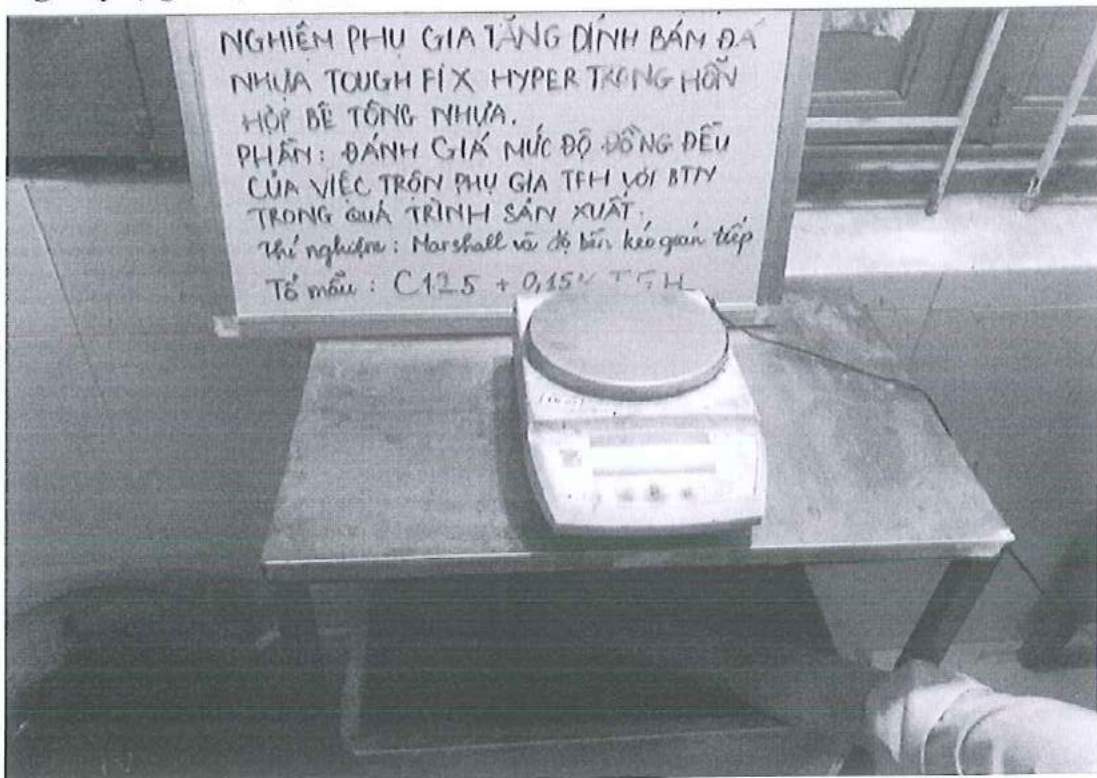 NGHIỆM PHỤ GIA TĂNG DÍNH BÁM ĐÁ
NHỰA TOUGH FIX HYPER TRONG HỖN
HỢP BÊ TÔNG NHỰA.
PHẦN: ĐÁNH GIÁ MỨC ĐỘ ĐỒNG ĐỀU
CỦA VIỆC TRỘN PHỤ GIA TFH VỚI BTN
TRONG QUÁ TRÌNH SẢN XUẤT.
Thí nghiệm: Marshall và độ bền kéo gián tiếp
Tổ mẫu: C12.5 + 0,15% TFH